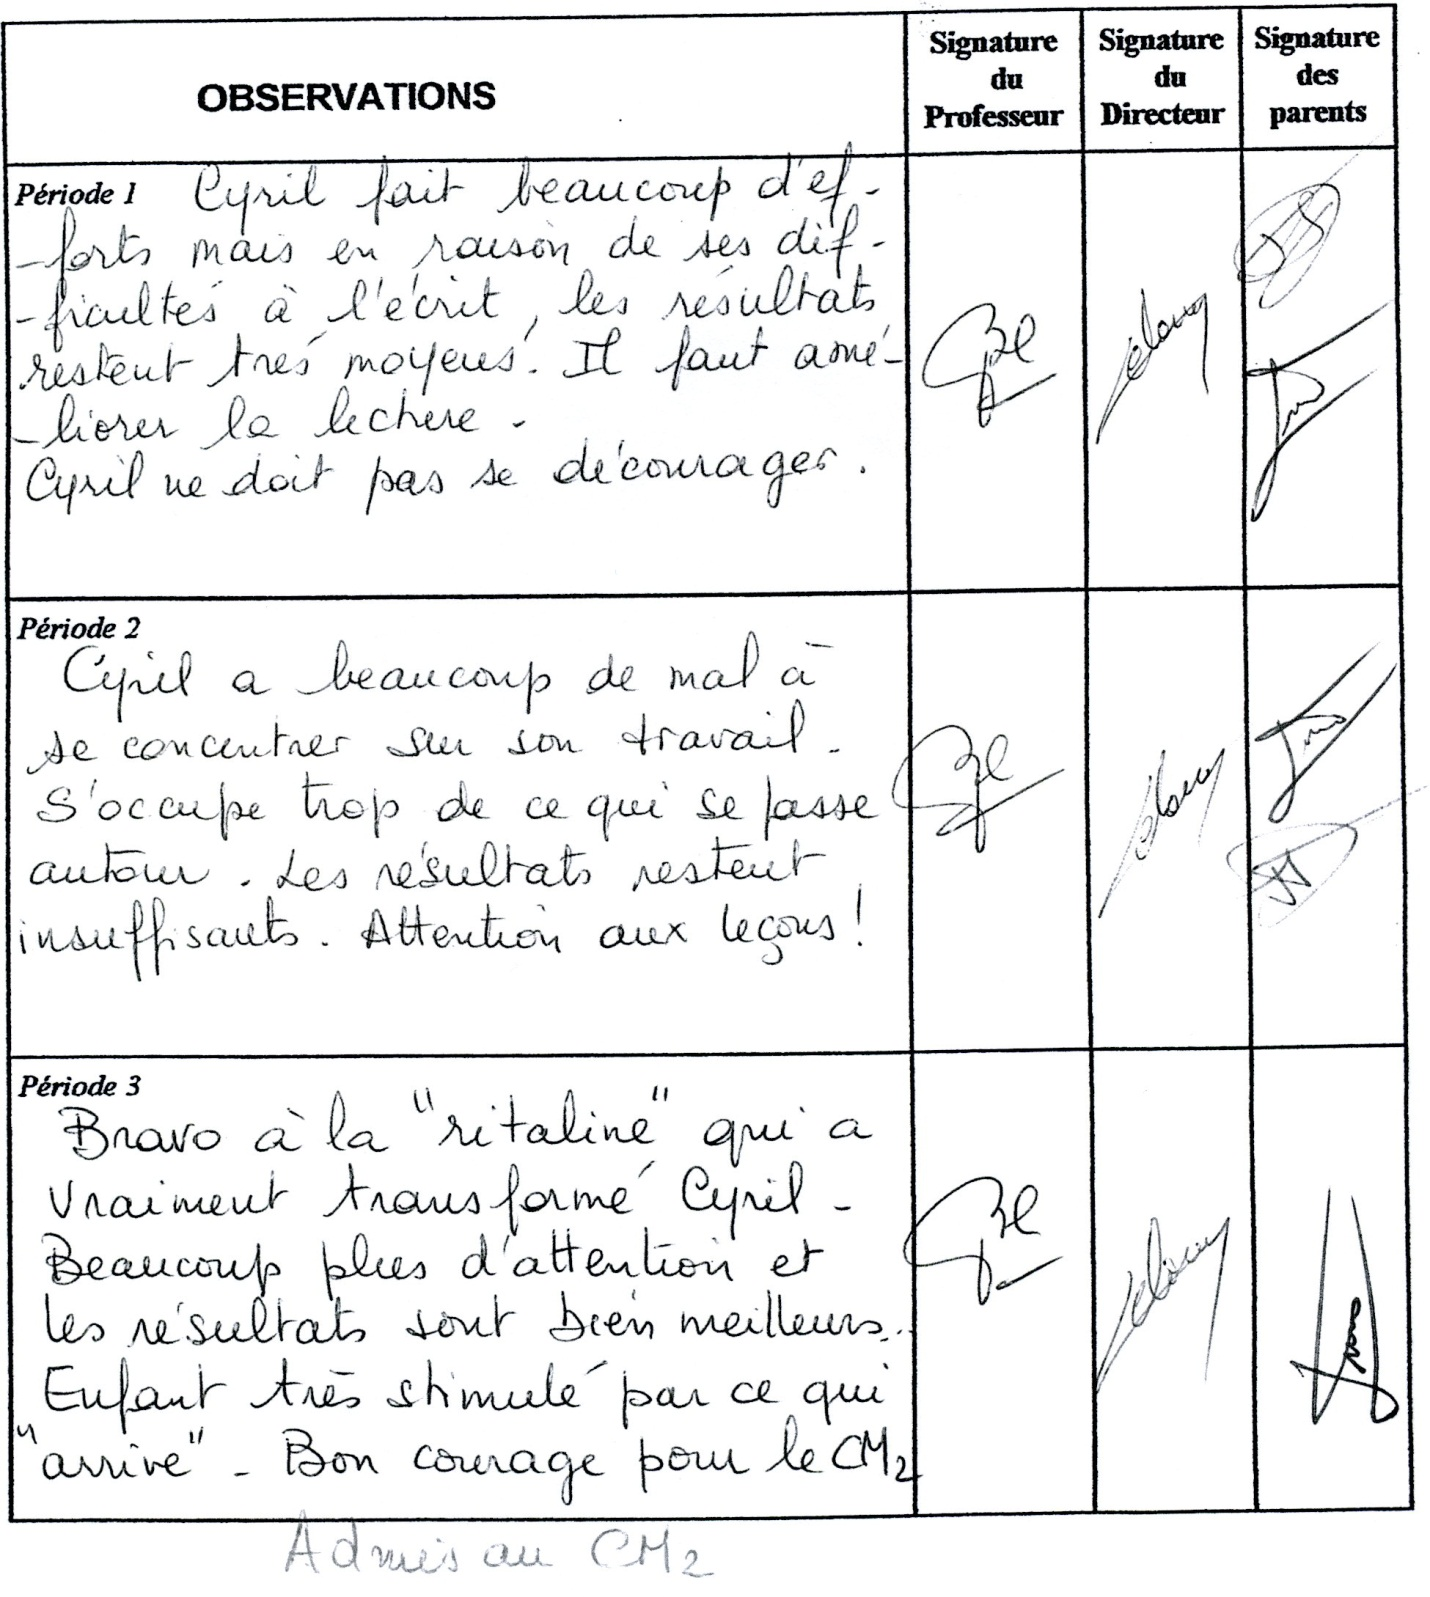 OBSERVATIONS
Signature
du
Professeur
Signature
du
Directeur
Signature
des
parents
Période 1 Cyril fait beaucoup d'ef-
-forts mais en raison de ses dif-
-ficultés à l'écrit, les résultats
restent trés moyens. Il faut amé-
-liorer la lecture.
Cyril ne doit pas se décourager.
Période 2
Cyril a beaucoup de mal à
se concentrer sur son travail.
S'occupe trop de ce qui se passe
autour. Les résultats restent
insuffisants. Attention aux leçons!
Période 3
Bravo à la "ritaline" qui a
vraiment transformé Cyril -
Beaucoup plus d'attention et
les résultats sont bien meilleurs..
Enfant très stimulé par ce qui
"arrive" - Bon courage pour le CM2
Admis au CM2